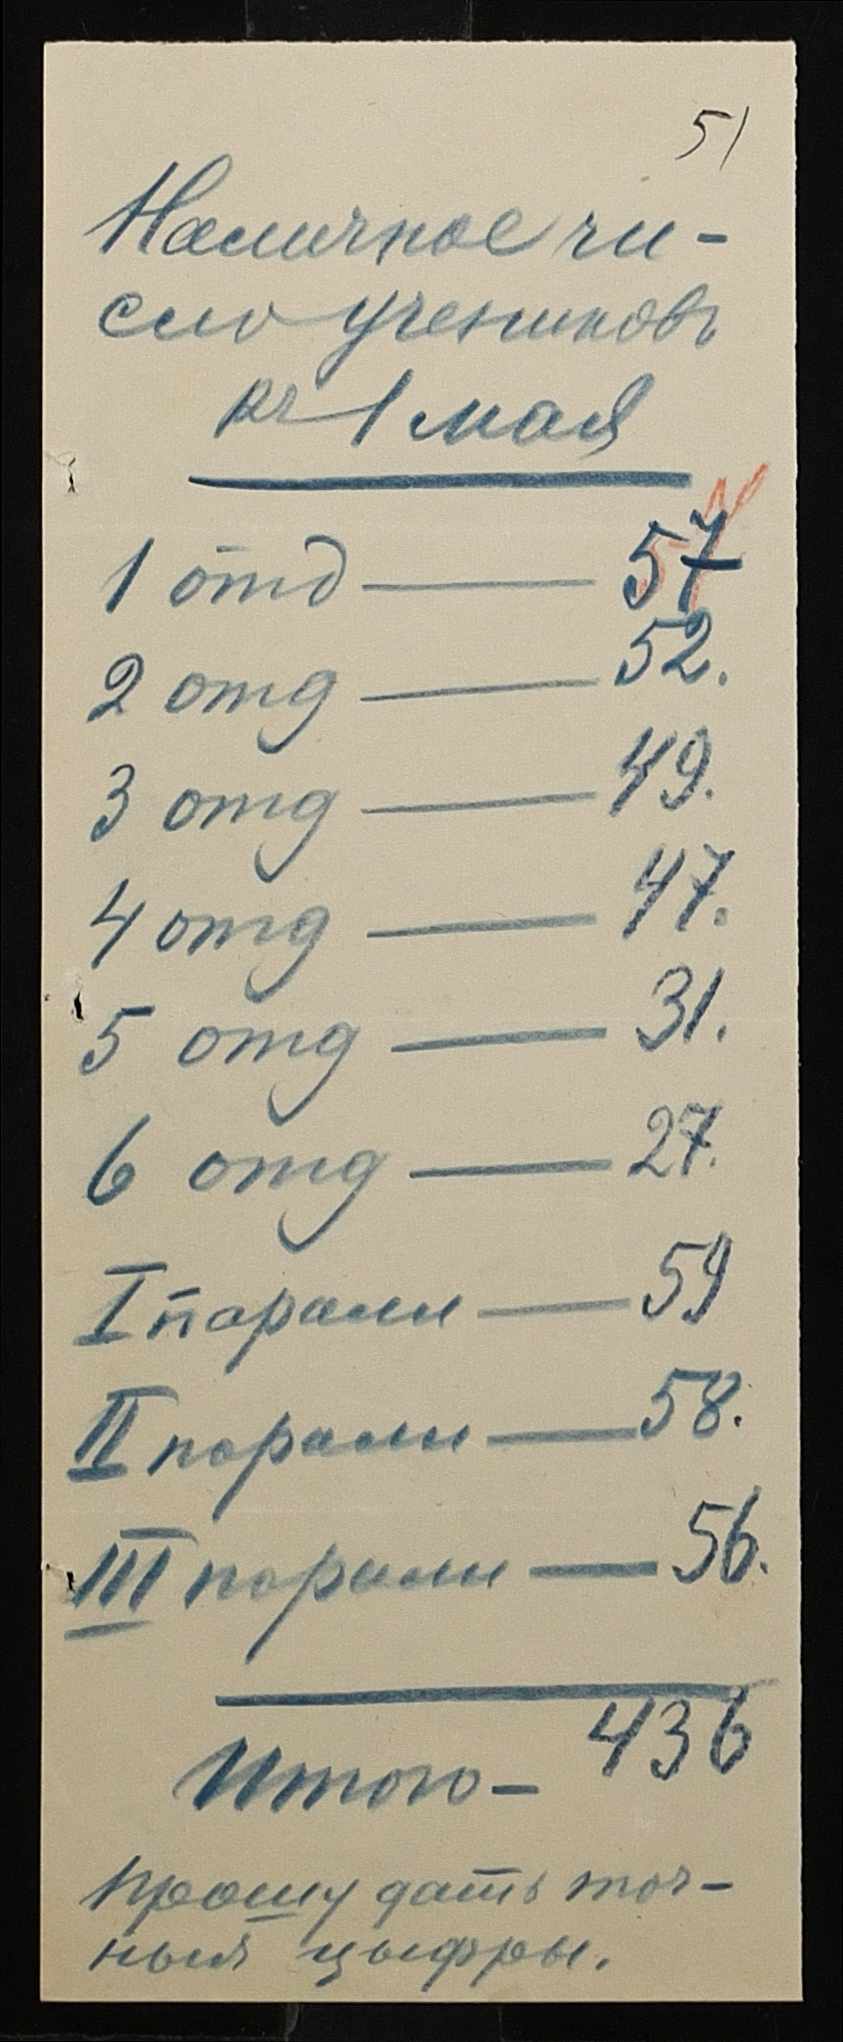 51
Наличное чи-
сло учениковъ
къ 1 мая
1 отд — 57
2 отд — 52.
3 отд — 49.
4 отд — 47.
5 отд — 31.
6 отд — 27.
I паралл — 59
II паралл — 58.
III паралл — 56.
Итого — 436
Прошу дать точ-
ныя цыфры.